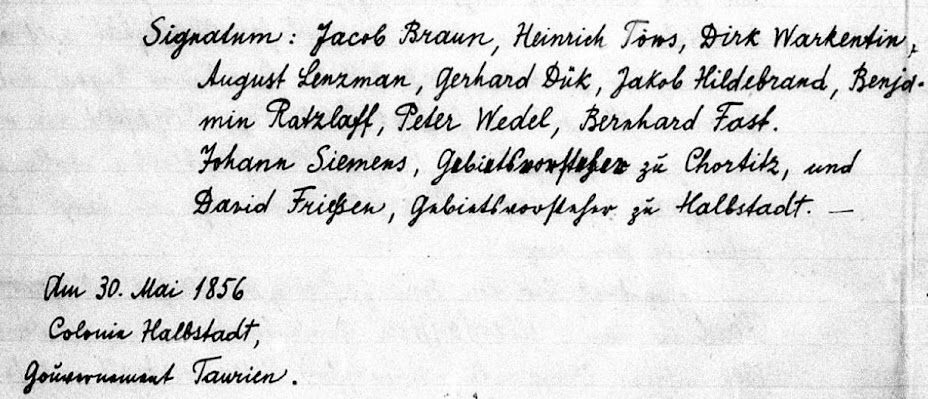 Signatum: Jacob Braun, Heinrich Töws, Dirk Warkentin,
August Lenzman, Gerhard Dük, Jakob Hildebrand, Benja-
min Ratzlaff, Peter Wedel, Bernhard Fast.
Johann Siemens, Gebietsvorsteher zu Chortitz, und
David Frießen, Gebietsvorsteher zu Halbstadt. —
Am 30. Mai 1856
Colonie Halbstadt,
Gouvernement Taurien.